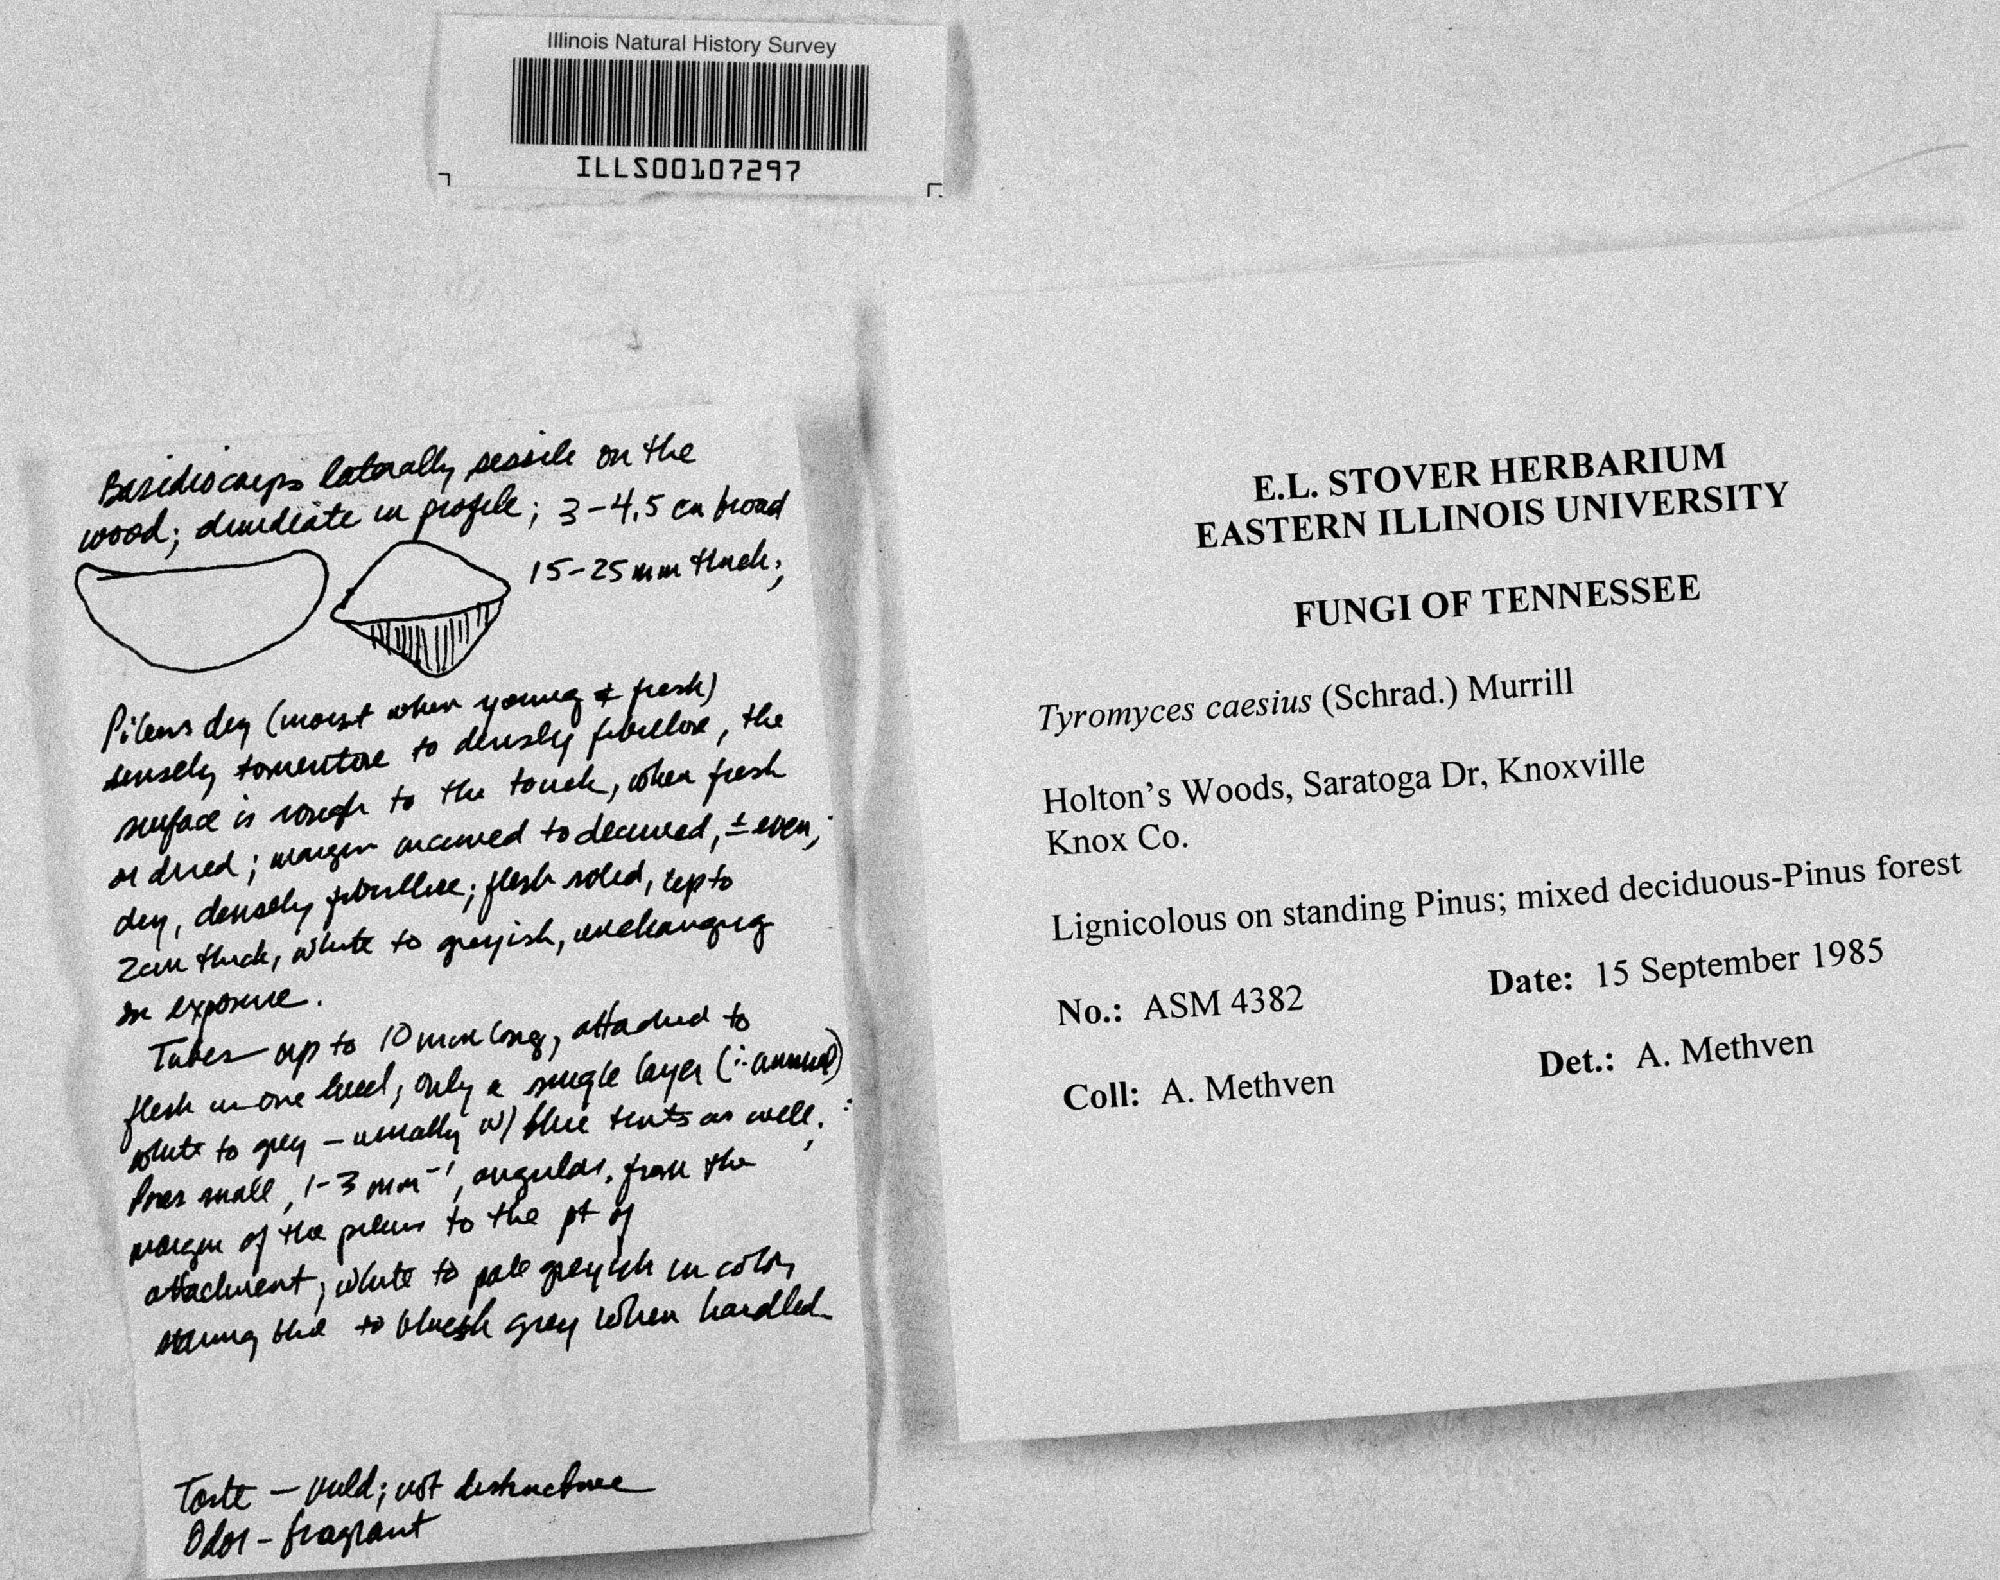 Illinois Natural History Survey
ILLS00107297
Basidiocarps laterally sessile on the
wood; dimidiate in profile; 3-4.5 cm broad
15-25 mm thick;
Pileus dry (moist when young & fresh)
densely tomentose to densely fibrillose, the
surface is rough to the touch, when fresh
or dried; margin incurved to decurved, ± even,
dry, densely fibrillose; flesh solid, up to
2cm thick, white to greyish, unchanging
on exposure.
Tubes - up to 10 mm long, attached to
flesh in one level, only a single layer (∴ annual)
white to grey - usually w/ blue tints as well.
Pores small, 1-3 mm⁻¹, angular, from the
margin of the pileus to the pt of
attachment; white to pale greyish in color,
staining blue to bluish grey when handled
Taste - mild; not distinctive
Odor - fragrant
E.L. STOVER HERBARIUM
EASTERN ILLINOIS UNIVERSITY
FUNGI OF TENNESSEE
Tyromyces caesius (Schrad.) Murrill
Holton's Woods, Saratoga Dr, Knoxville
Knox Co.
Lignicolous on standing Pinus; mixed deciduous-Pinus forest
No.: ASM 4382 Date: 15 September 1985
Coll: A. Methven Det.: A. Methven